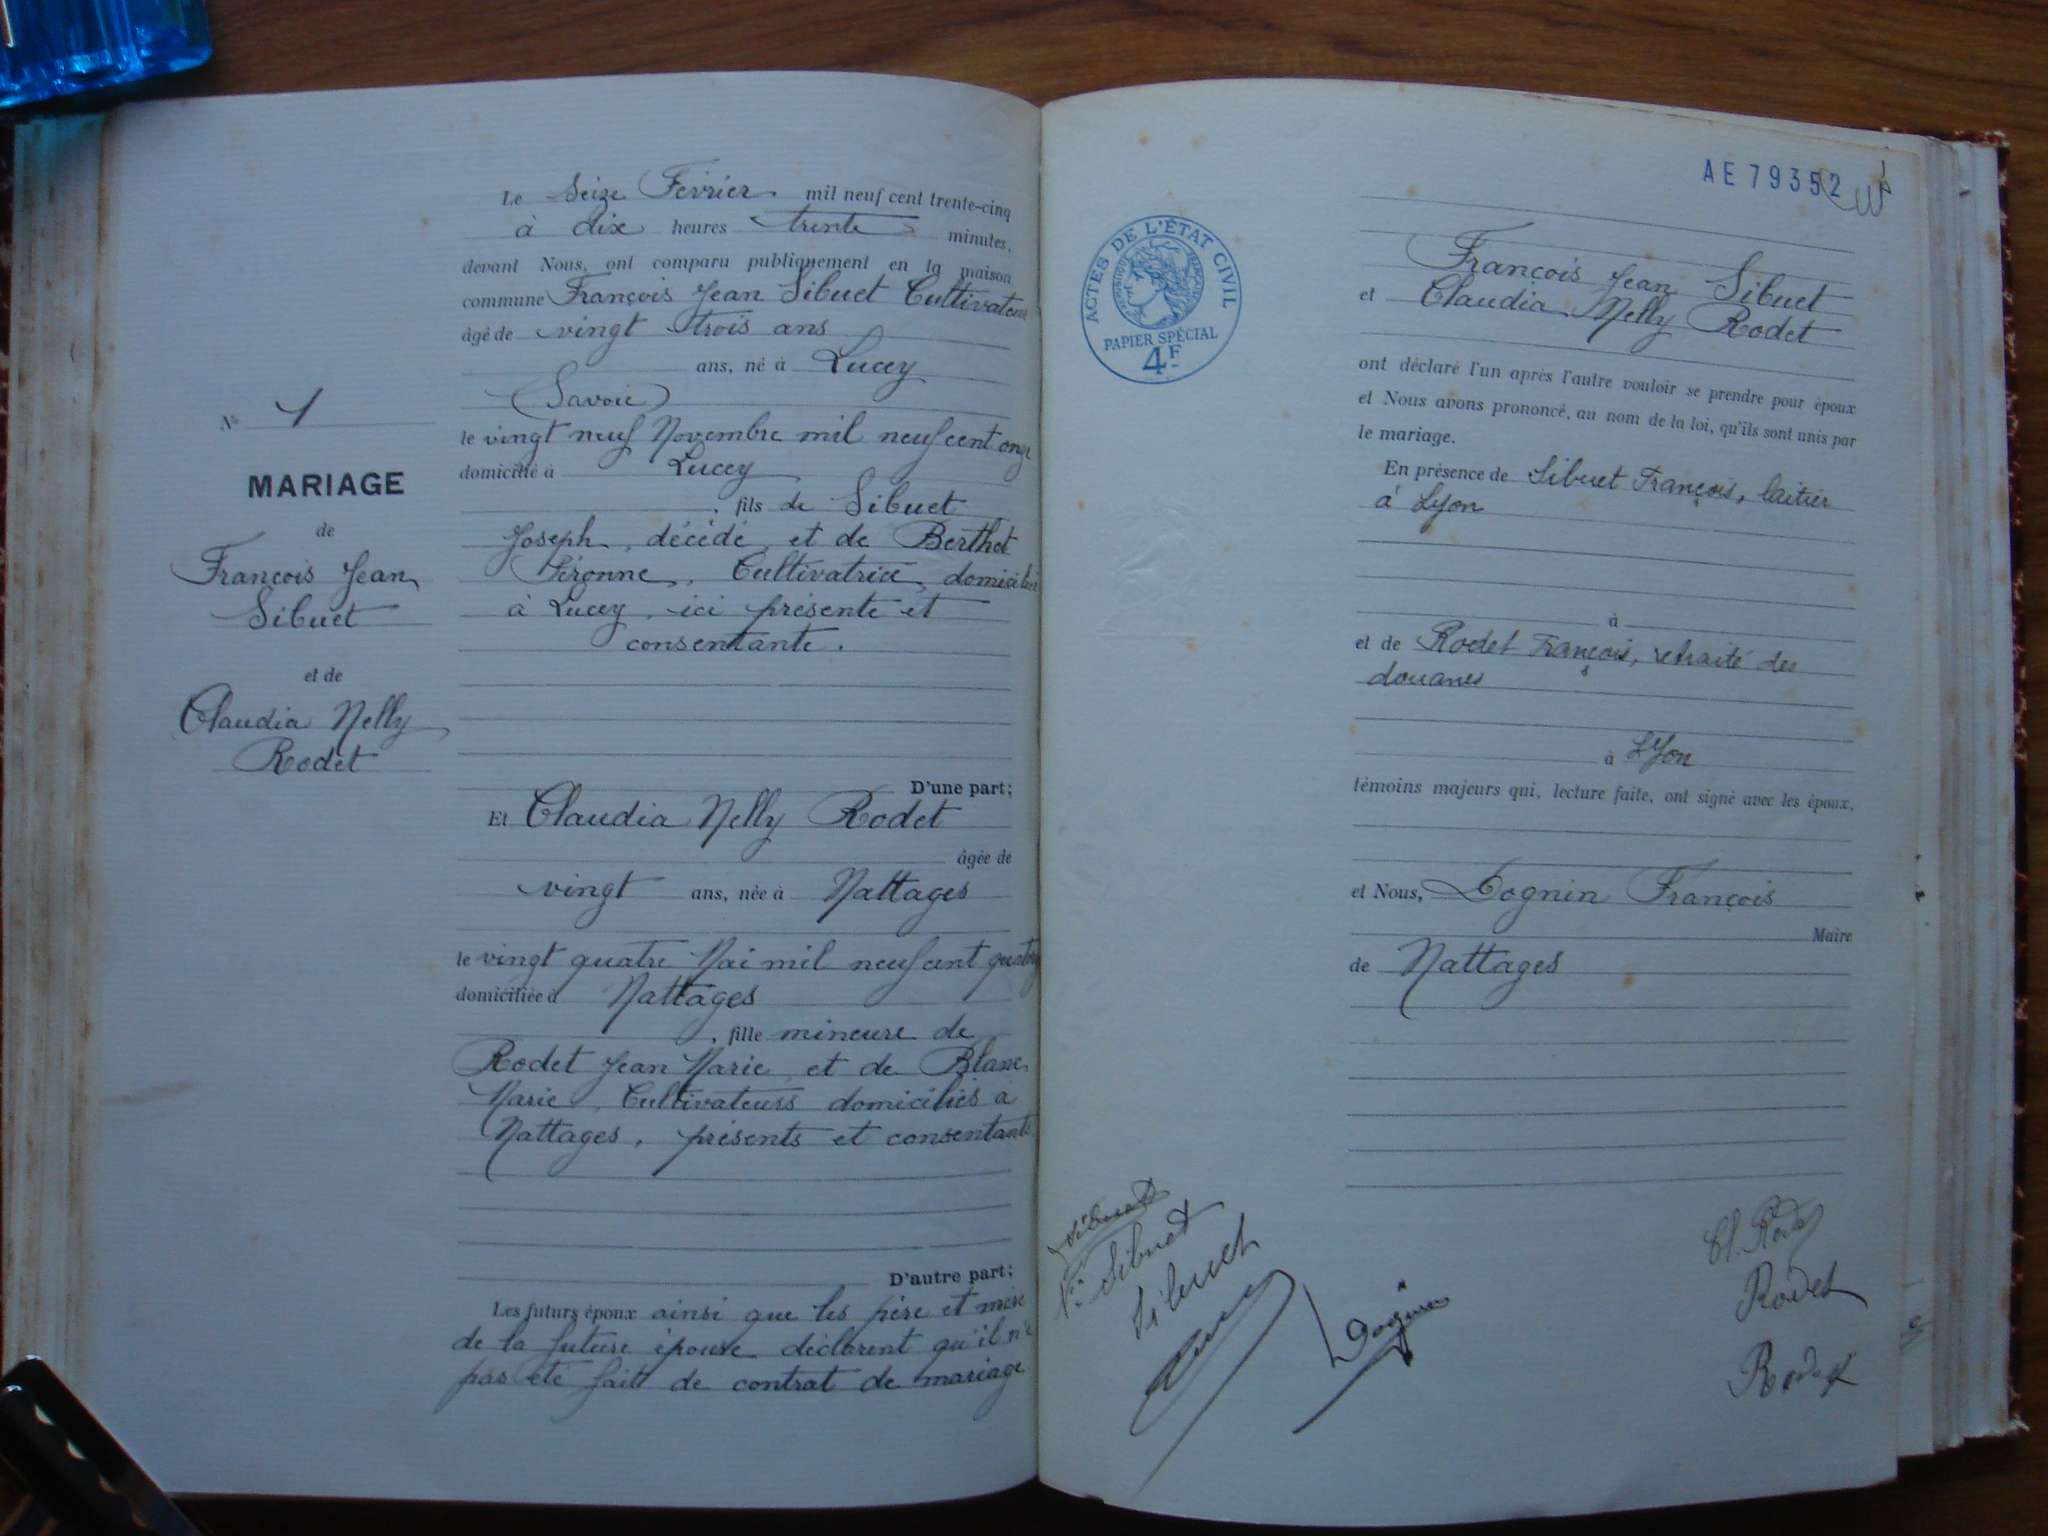 N° 1
MARIAGE
de
François Jean
Sibuet
et de
Claudia Nelly
Rodet
Le Seize Février mil neuf cent trente-cinq
à dix heures trente minutes,
devant Nous, ont comparu publiquement en la maison
commune François Jean Sibuet Cultivateur
âgé de vingt trois ans
ans, né à Lucey
(Savoie)
le vingt neuf Novembre mil neuf cent onze
domicilié à Lucey
, fils de Sibuet
Joseph, décédé, et de Berthet
Péronne, Cultivatrice, domiciliée
à Lucey, ici présente et
consentante.
D'une part;
Et Claudia Nelly Rodet
âgée de
vingt ans, née à Nattages
le vingt quatre Mai mil neuf cent quatorze
domiciliée à Nattages
, fille mineure de
Rodet Jean Marie, et de Blanc
Marie, Cultivateurs domiciliés à
Nattages, présents et consentants
D'autre part;
Les futurs époux ainsi que les père et mère
de la future épouse déclarent qu'il n'a
pas été fait de contrat de mariage
AE 79352
ACTES DE L'ÉTAT CIVIL
PAPIER SPÉCIAL
4F
François Jean Sibuet
et Claudia Nelly Rodet
ont déclaré l'un après l'autre vouloir se prendre pour époux
et Nous avons prononcé, au nom de la loi, qu'ils sont unis par
le mariage.
En présence de Sibuet François, laitier
à Lyon
à
et de Rodet François, retraité des
douanes
à Lyon
témoins majeurs qui, lecture faite, ont signé avec les époux,
et Nous, Dognin François
Maire
de Nattages
Sibuet
F. Sibuet
Sibuet
Dognin
Cl. Rodet
Rodet
Rodet